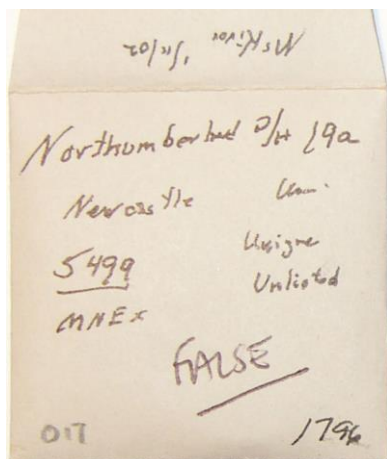 McKivor 5/1/02
Northumberland D/H 19a
Newcastle Unc.
5499 Unique
MNEx Unlisted
FALSE
017 1796